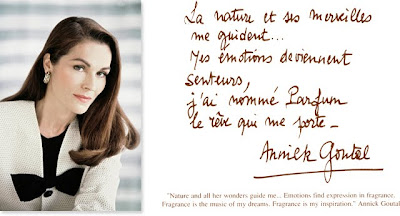 La nature et ses merveilles
me guident...
Mes émotions deviennent
senteurs,
j'ai nommé Parfum
le rêve qui me porte_
Annick Goutal
"Nature and all her wonders guide me... Emotions find expression in fragrance,
Fragrance is the music of my dreams. Fragrance is my inspiration." Annick Goutal